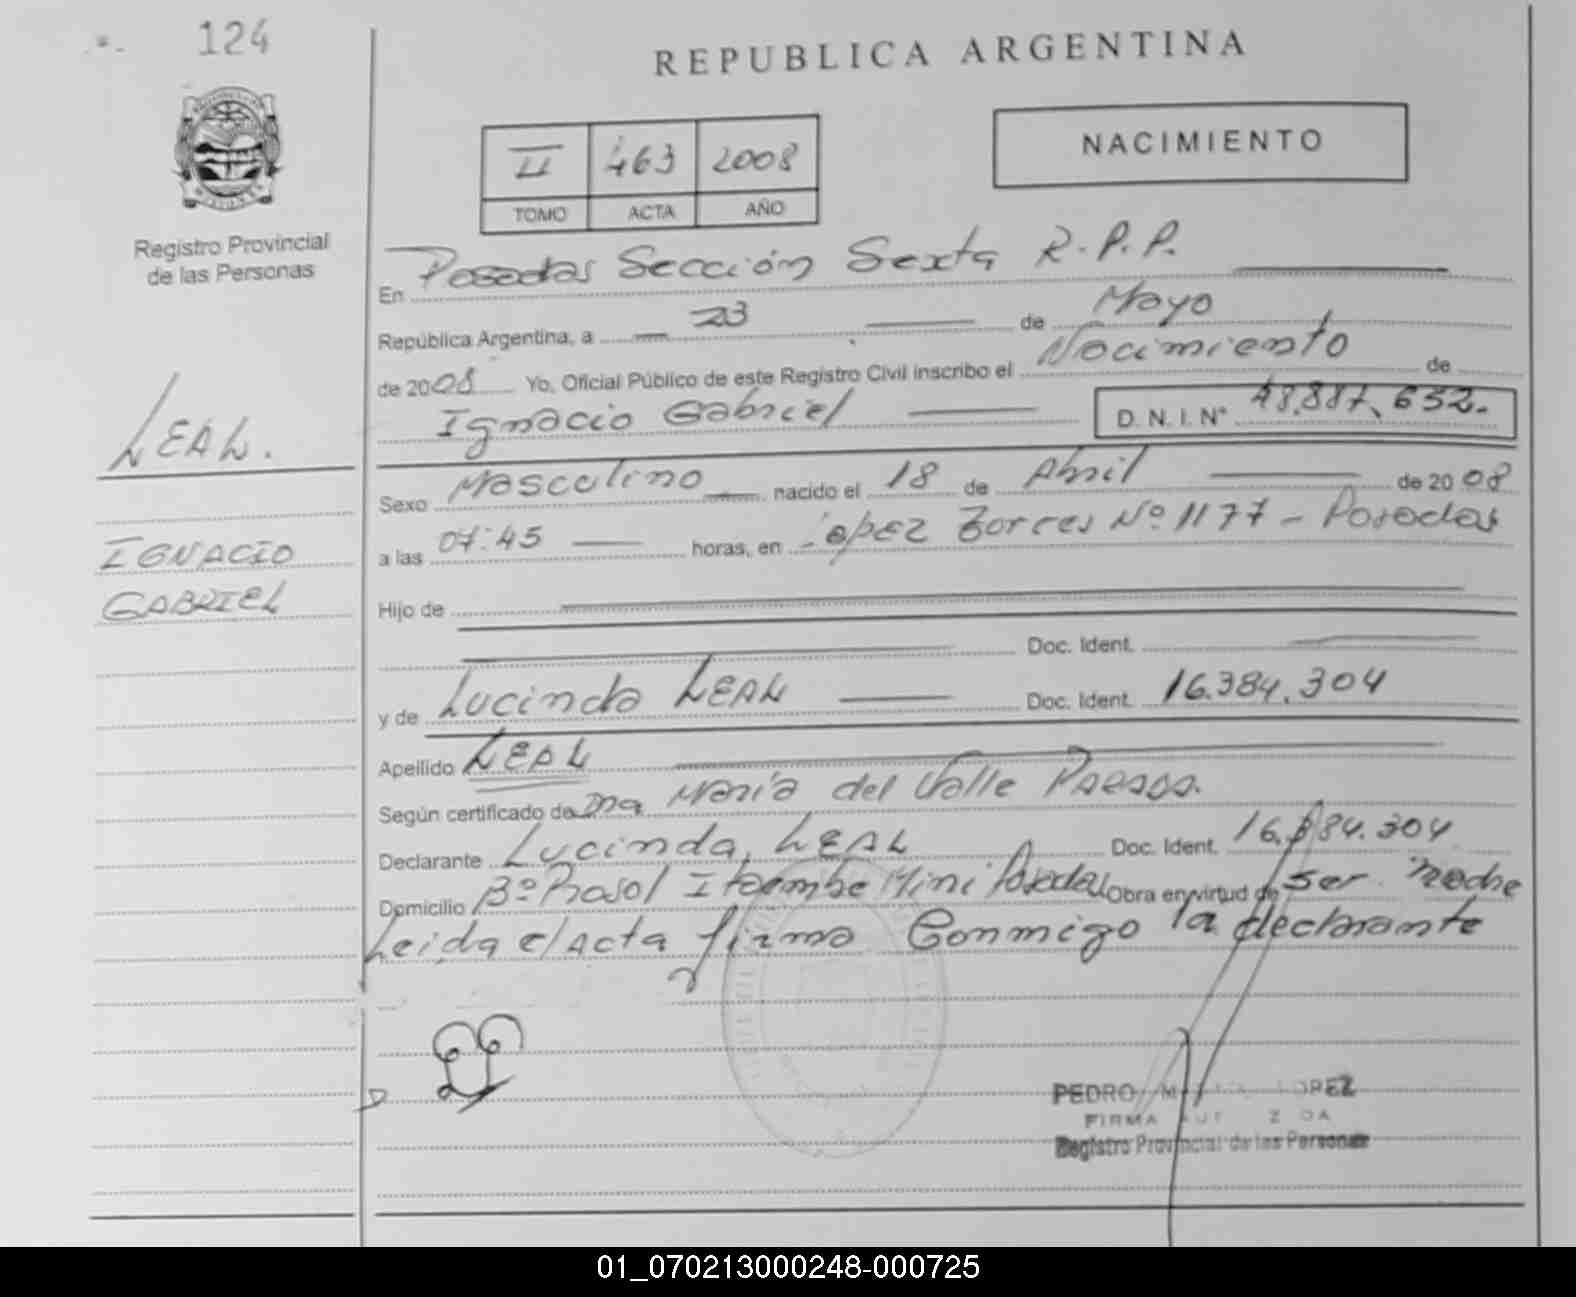 124
REPUBLICA ARGENTINA
NACIMIENTO
II 463 2008
TOMO ACTA AÑO
Registro Provincial
de las Personas
En Posadas Sección Sexta R.P.P.
República Argentina, a 23 de Mayo
de 2008 Yo, Oficial Público de este Registro Civil inscribo el Nacimiento de
Ignacio Gabriel D. N. I. N° 48.887.632.
LEAL.
IGNACIO
GABRIEL
Sexo Masculino nacido el 18 de Abril de 2008
a las 07:45 horas, en Lopez Torres Nº 1177 - Posadas
Hijo de
Doc. Ident.
y de Lucinda LEAL Doc. Ident. 16.384.304
Apellido LEAL
Según certificado de Dña María del Valle
Declarante Lucinda, LEAL Doc. Ident. 16.384.304
Domicilio Bº Itaembe Mini Posadas Obra en virtud de ser madre
Leida el Acta firma Conmigo la declarante
PEDRO LOPEZ
FIRMA
Registro Provincial de las Personas
01_070213000248-000725